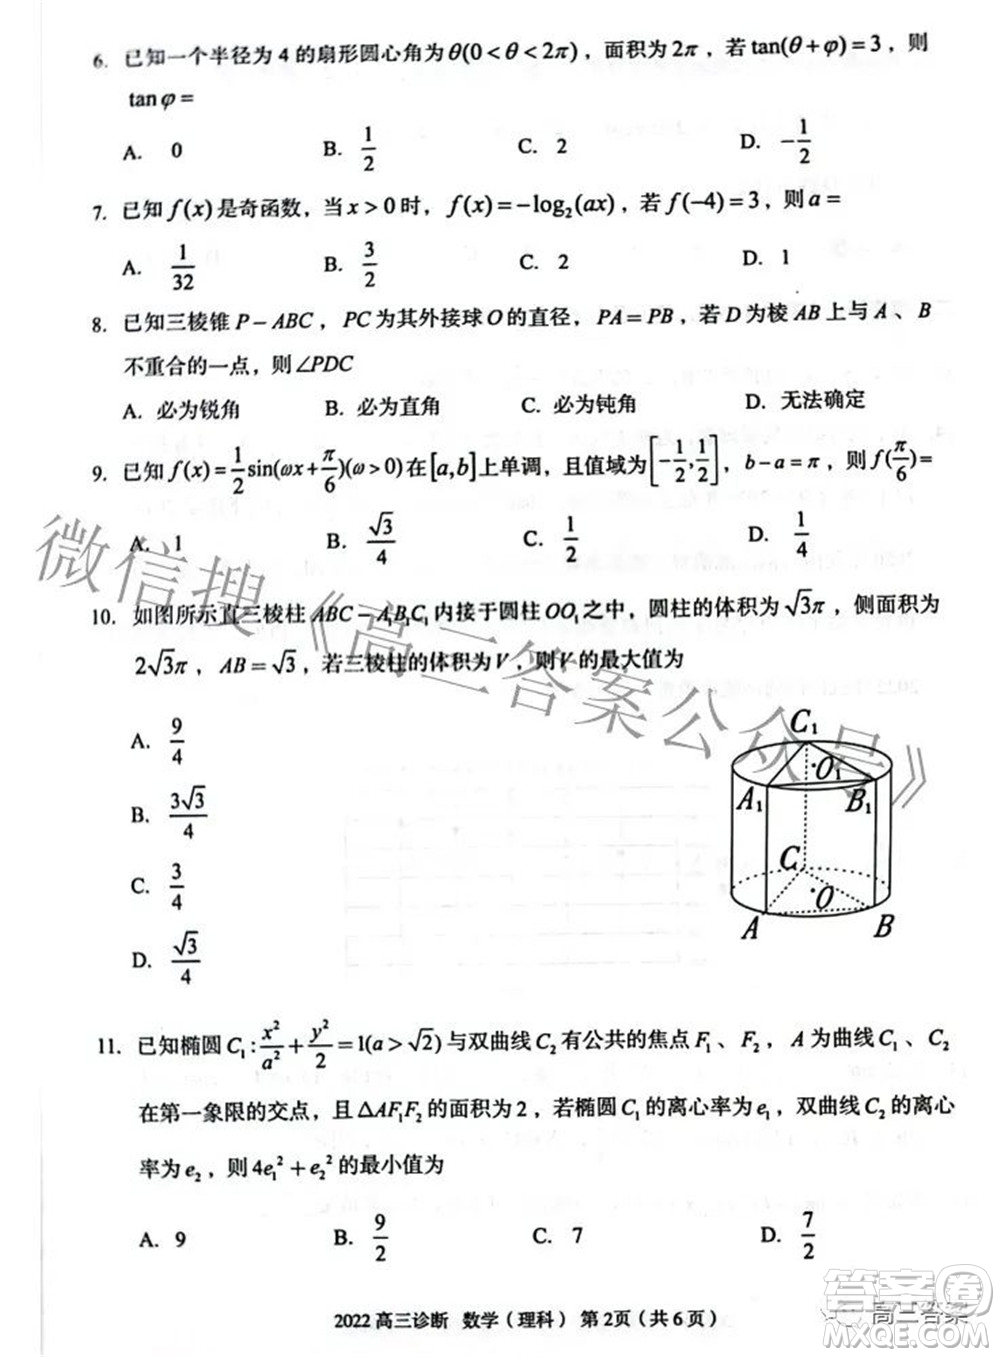 6. 已知一个半径为 4 的扇形圆心角为θ(0<θ<2π)，面积为 2π，若 tan(θ+φ)=3，则
tanφ=
A. 0 B. 1/2 C. 2 D. -1/2
7. 已知 f(x) 是奇函数，当 x>0 时，f(x)=-log₂(ax)，若 f(-4)=3，则 a=
A. 1/32 B. 3/2 C. 2 D. 1
8. 已知三棱锥 P-ABC，PC 为其外接球 O 的直径，PA=PB，若 D 为棱 AB 上与 A 、B
不重合的一点，则 ∠PDC
A. 必为锐角 B. 必为直角 C. 必为钝角 D. 无法确定
9. 已知 f(x)=1/2 sin(ωx+π/6)(ω>0) 在 [a,b] 上单调，且值域为 [-1/2,1/2]，b-a=π，则 f(π/6)=
A. 1 B. √3/4 C. 1/2 D. 1/4
10. 如图所示直三棱柱 ABC-A₁B₁C₁ 内接于圆柱 OO₁ 之中，圆柱的体积为 √3π，侧面积为
2√3π，AB=√3，若三棱柱的体积为 V 则 V 的最大值为
A. 9/4
B. 3√3/4
C. 3/4
D. √3/4
C₁
O₁
A₁
B₁
C
O
A
B
11. 已知椭圆 C₁: x²/a²+y²/2=1(a>√2) 与双曲线 C₂ 有公共的焦点 F₁ 、F₂，A 为曲线 C₁ 、C₂
在第一象限的交点，且 ΔAF₁F₂ 的面积为 2，若椭圆 C₁ 的离心率为 e₁，双曲线 C₂ 的离心
率为 e₂，则 4e₁²+e₂² 的最小值为
A. 9 B. 9/2 C. 7 D. 7/2
2022 高三诊断 数学（理科） 第 2页（共 6 页）
微信搜《高三答案公众号》
高三答案
答案圈
MXQE.COM